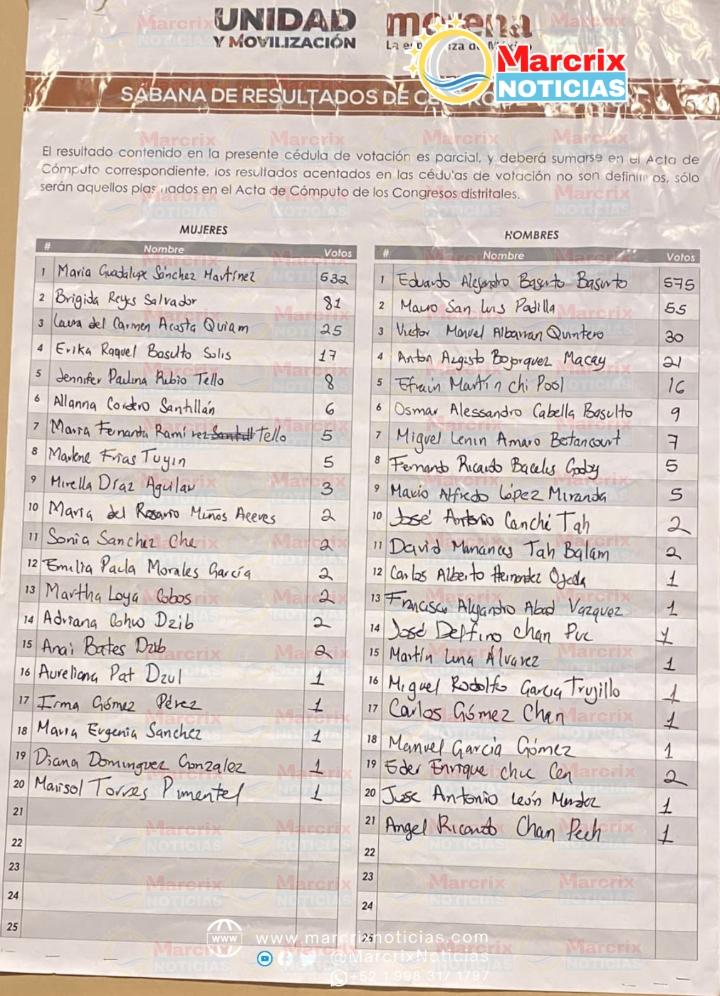 UNIDAD
Y MOVILIZACIÓN
morena
Marcrix
NOTICIAS
SÁBANA DE RESULTADOS DE
El resultado contenido en la presente cédula de votación es parcial, y deberá sumarse en el Acta de
Cómputo correspondiente, los resultados acentados en las cédulas de votación no son definitivos, sólo
serán aquellos plasmados en el Acta de Cómputo de los Congresos distritales.
MUJERES
# Nombre Votos
1 Maria Guadalupe Sánchez Martínez 532
2 Brigida Reyes Salvador 81
3 Laura del Carmen Acosta Quiam 25
4 Erika Raquel Basulto Solis 17
5 Jennifer Paulina Rubio Tello 8
6 Allanna Cordero Santillán 6
7 Maria Fernanda Ramirez Tello 5
8 Marlene Frias Tuyin 5
9 Mirella Díaz Aguilar 3
10 Maria del Rosario Muños Aceves 2
11 Sonia Sanchez Che 2
12 Emilia Paola Morales García 2
13 Martha Loya Cobos 2
14 Adriana Cohuo Dzib 2
15 Anai Bates Dzib 2
16 Aureliana Pat Dzul 1
17 Irma Gómez Pérez 1
18 Maria Eugenia Sanchez 1
19 Diana Dominguez Gonzalez 1
20 Marisol Torres Pimentel 1
21
22
23
24
25
HOMBRES
# Nombre Votos
1 Eduardo Alejandro Basurto Basurto 575
2 Mauro San Luis Padilla 55
3 Victor Manuel Albarran Quintero 30
4 Anton Augusto Bojorquez Macay 21
5 Efraín Martín Chi Pool 16
6 Osmar Alessandro Cabella Basulto 9
7 Miguel Lenin Amaro Betancourt 7
8 Fernando Ricardo Bacelis Godoy 5
9 Mario Alfredo López Miranda 5
10 José Antonio Canché Tah 2
11 David Tah Balam 2
12 Carlos Alberto Hernandez Ojeda 1
13 Francisco Alejandro Abad Vazquez 1
14 José Delfino Chan Puc 1
15 Martín Luna Álvarez 1
16 Miguel Rodolfo Garcia Trujillo 1
17 Carlos Gómez Chan 1
18 Manuel García Gómez 1
19 Eder Enrique Chuc Cen 2
20 José Antonio León 1
21 Angel Ricardo Chan Pech 1
22
23
24
25
www.marcrixnoticias.com
@MarcrixNoticias
+52 1 998 317 1797